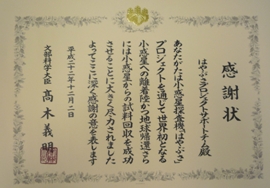 感謝状
はやぶさプロジェクトサポートチーム殿
あなたがたは小惑星探査機「はやぶさ」
プロジェクトを通して世界初となる
小惑星への離着陸から地球帰還さら
には小惑星からの試料回収を成功
させることに大きく尽力されました
よってここに深く感謝の意を表します
平成二十二年十二月二日
文部科学大臣 高木義明